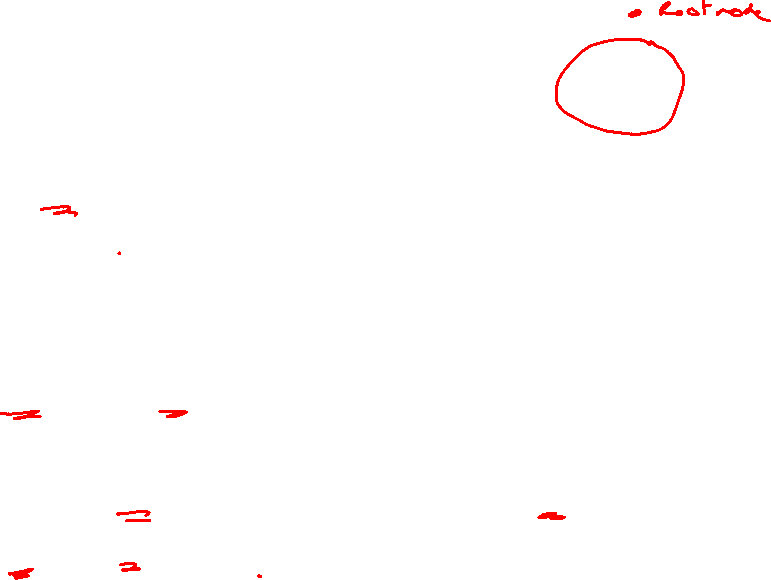 Root node